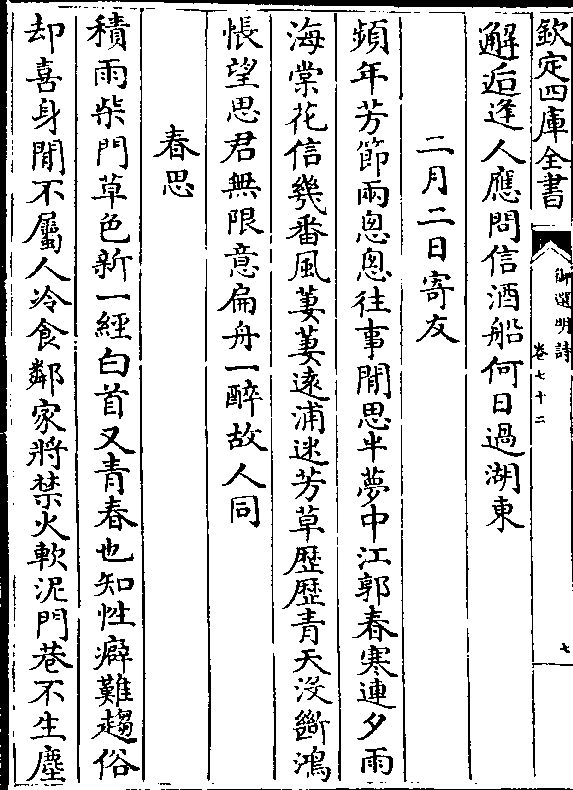 欽定四庫全書
御選明詩
卷七十二
七
邂逅逢人應問信酒船何日過湖東
二月二日寄友
頻年芳節兩悤悤往事閒思半夢中江郭春寒連夕雨
海棠花信幾番風萋萋遠浦迷芳草歷歷青天沒斷鴻
悵望思君無限意扁舟一醉故人同
春思
積雨柴門草色新一經白首又青春也知性癖難趨俗
却喜身閒不屬人冷食鄰家將禁火軟泥門巷不生塵